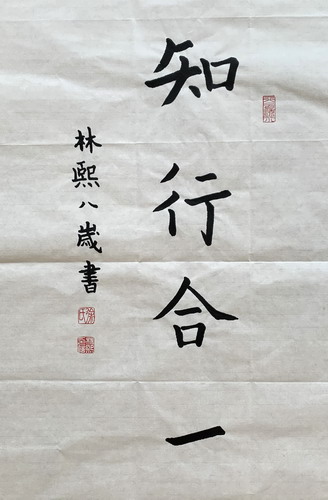 知行合一
林熙八歲書